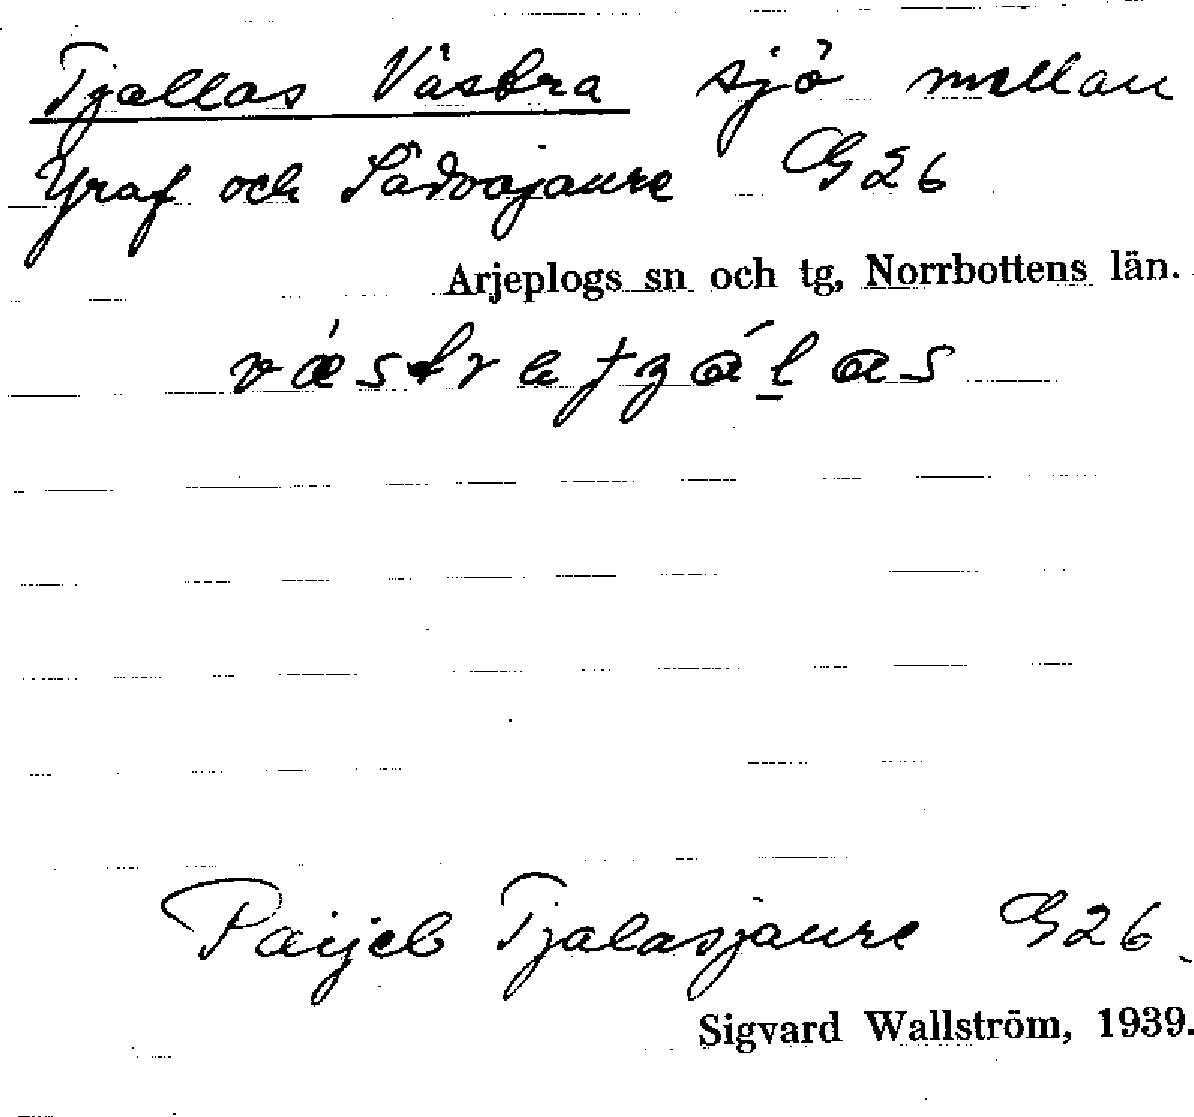 Tjallas Västra sjö mellan
Yraf och Sädvajaure G26
Arjeplogs sn och tg, Norrbottens län.
Paijeb Tjalasjaure G26
Sigvard Wallström, 1939.